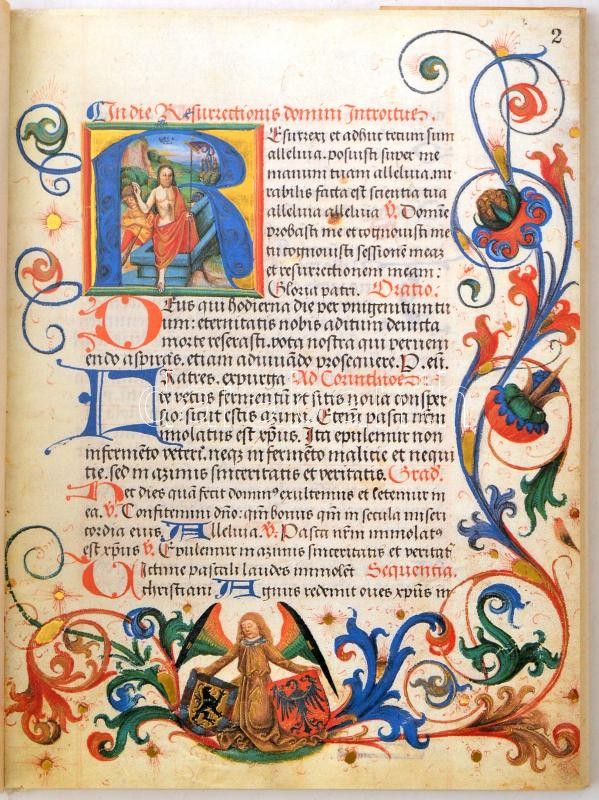 2
In die Resurrectionis domini Introitus.
Resurrexi et adhuc tecum sum
alleluia. posuisti super me
manum tuam alleluia. mi
rabilis facta est scientia tua
alleluia alleluia V. Domine
probasti me et cognouisti me
tu cognouisti sessionem meaz
et resurrectionem meam:
Gloria patri. Oratio.
Deus qui hodierna die per vnigenitum tu
um: eternitatis nobis aditum deuicta
morte reserasti. vota nostra qui preueni
endo aspiras. etiam adiuuādo prosequere. P. eū.
Fratres. expurga Ad Corinthioz
te vetus fermentū vt sitis noua consper
sio: sicut estis azimi. Etem̄ pasca nr̄m
immolatus est xp̄us. Ita epulemur non
in fermēto veteri. neqz in fermēto malicie et nequi
tie. sed in azimis sinceritatis et veritatis. Grad.
Hec dies quā fecit domin9 exultemus et letemur in
ea. V. Confitemini dn̄o: qm̄ bonus qm̄ in secula miseri
cordia eius. Alleluia. V. Pasca nr̄m immolat9
est xp̄us V. Epulemur in azimis sinceritatis et veritat̄
Victime pascali laudes immolēt Sequentia.
christiani. Agnus redemit oues xp̄us in